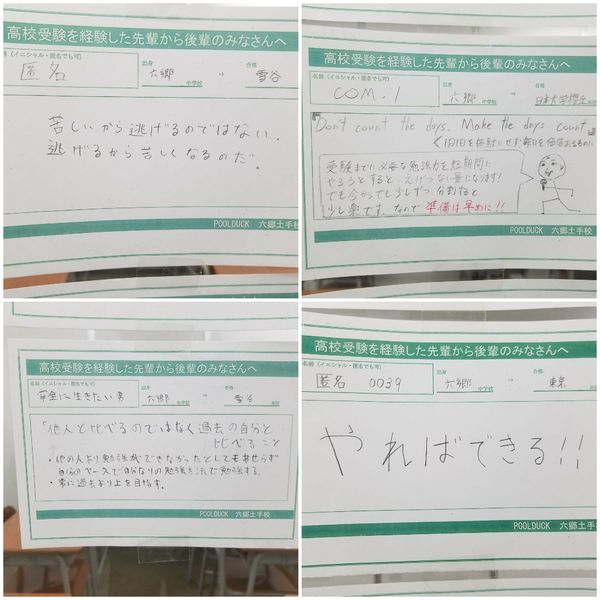 高校受験を経験した先輩から後輩のみなさんへ
名前(イニシャル・匿名でも可)
匿名
出身
六郷
中学校
⇒
合格
雪谷
苦しいから逃げるのではない.
逃げるから苦しくなるのだ.
POOLDUCK 六郷土手校
高校受験を経験した先輩から後輩のみなさんへ
名前(イニシャル・匿名でも可)
COM.1
出身
六郷
中学校
⇒
合格
日本大学櫻丘
「Don't count the days. Make the days count」
く1日1日を
受験までに必要な勉強力を短期間に
やろうとすると、えげつない量になります!
でも今から少しずつ分割すると
少し楽です。なので準備は早めに!!
POOLDUCK 六郷土手校
高校受験を経験した先輩から後輩のみなさんへ
名前(イニシャル・匿名でも可)
安全に生きたい男
出身
六郷
中学校
⇒
合格
雪谷
高校
「他人と比べるのではなく過去の自分と
比べること
・他の人より勉強ができなかったとしてもあせらず
自分のペースで自分なりの勉強方法で勉強する。
・常に過去より上を目指す。
POOLDUCK 六郷土手校
高校受験を経験した先輩から後輩のみなさんへ
名前(イニシャル・匿名でも可)
匿名 0039
出身
六郷
中学校
⇒
合格
東京
やればできる!!
POOLDUCK 六郷土手校